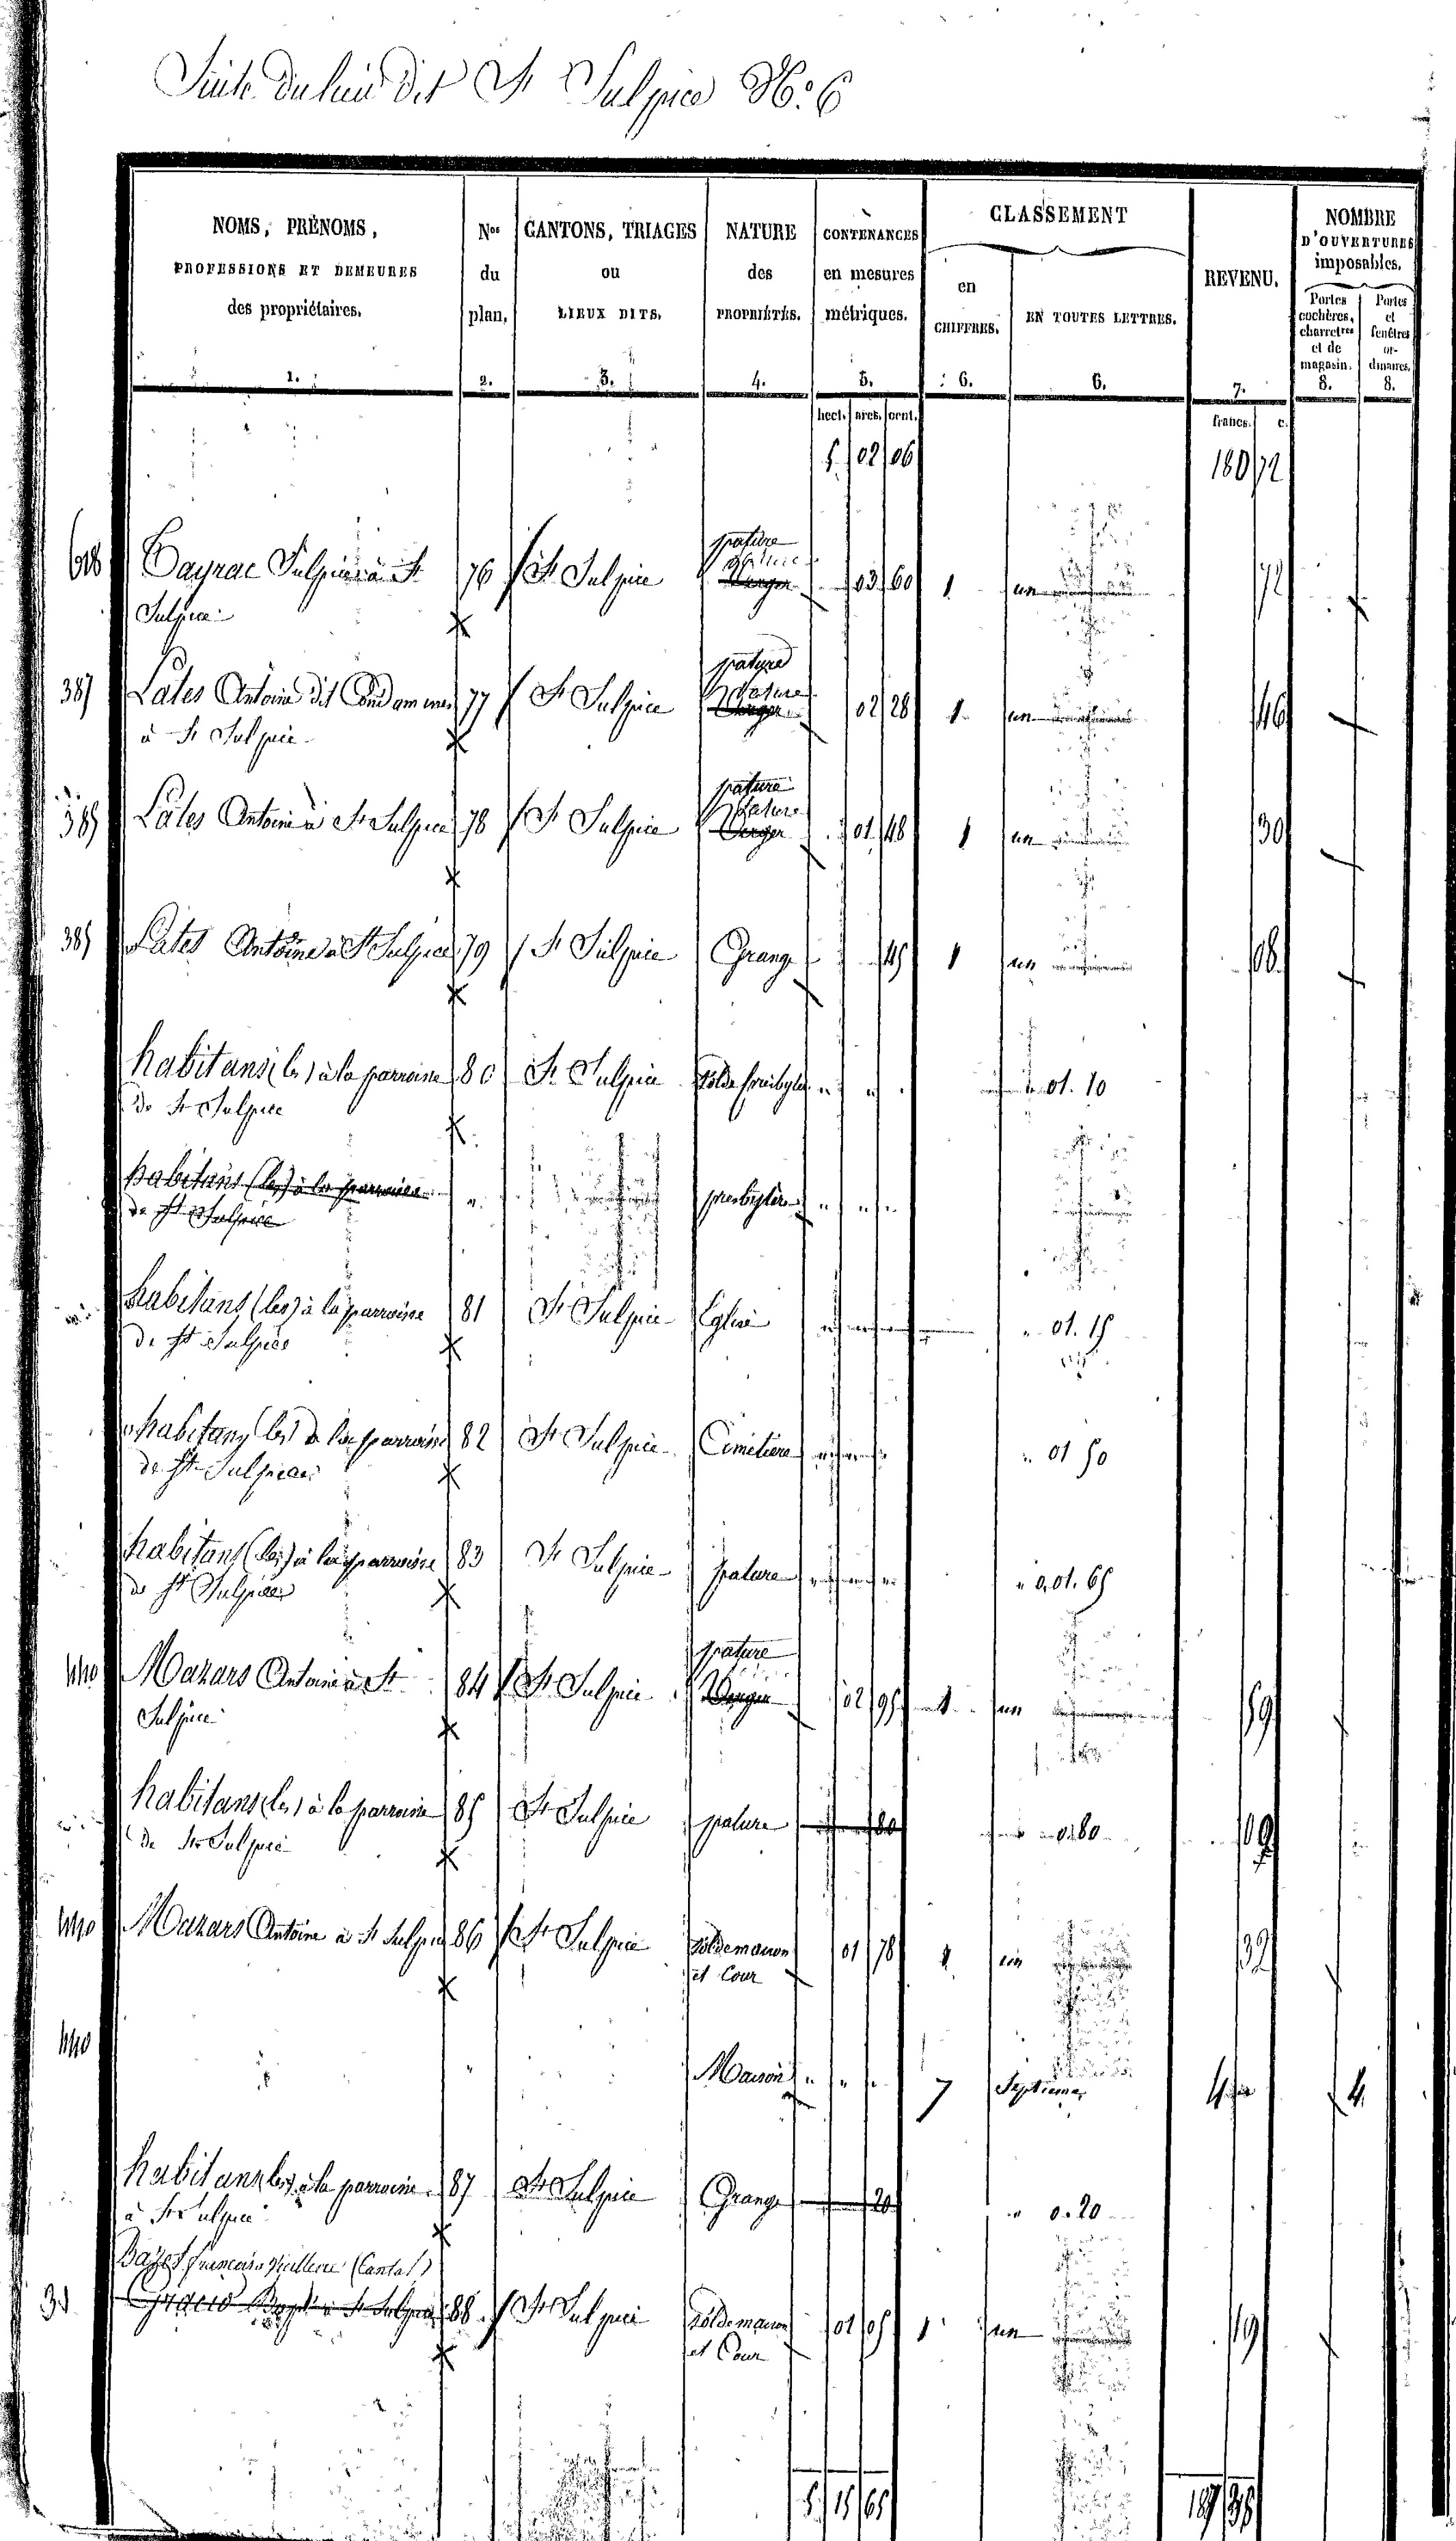 Suite du lieu dit St Sulpice N.o 6
NOMS, PRÉNOMS, PROFESSIONS ET DEMEURES des propriétaires. 1.
Nos du plan. 2.
CANTONS, TRIAGES ou LIEUX DITS. 3.
NATURE des PROPRIÉTÉS. 4.
CONTENANCES en mesures métriques. 5.
CLASSEMENT
en CHIFFRES. 6.
EN TOUTES LETTRES. 6.
REVENU. 7.
NOMBRE D'OUVERTURES imposables.
Portes cochères, charretres et de magasin. 8.
Portes et fenêtres ordinaires. 8.
hect. ares. cent. francs. c.
5 02 06 180 72
pature
618 Cayrac Sulpice à St 76 St Sulpice Verger 03 60 1 un 72
Sulpice
pature
pature
387 Lales Antoine dit Condamines 77 St Sulpice Verger 02 28 1 un 46
à St Sulpice
pature
pature
385 Lales Antoine à St Sulpice 78 St Sulpice Verger 01 48 1 un 30
385 Lales Antoine à St Sulpice 79 St Sulpice Grange 45 1 un 08
habitans (les) à la parroisse 80 St Sulpice sol de presbytere 01. 10
de St Sulpice
habitans (les) à la parroisse presbytère
de St Sulpice
habitans (les) à la parroisse 81 St Sulpice Eglise 01. 15
de St Sulpice
habitans (les) à la parroisse 82 St Sulpice Cimetière 01 50
de St Sulpice
habitans (les) à la parroisse 83 St Sulpice pature 0,01. 65
de St Sulpice
pature
440 Mazars Antoine à St 84 St Sulpice Verger 02 95 1 un 59
Sulpice
habitans (les) à la parroisse 85 St Sulpice pature 80 0.80 09
de St Sulpice
440 Mazars Antoine à St Sulpice 86 St Sulpice Sol de maison 01 78 1 un 32
et Cour
440 Maison 7 Septieme 4 4
habitans (les) à la parroisse 87 St Sulpice Grange 20 0.20
à St Sulpice
francois vieillevie (Cantal)
88 St Sulpice Sol de maison 01 05 1 un 19
et Cour
5 15 65 187 38